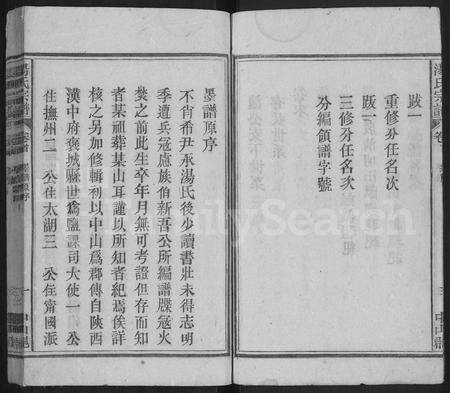 湯氏宗譜
跋一
重修分任名次
跋一
三修分任名次
分編領譜字號
墨譜原序
不肖希尹承湯氏後少讀書壯未得志明
季遭兵寇慮族伯新吾公所編譜牒寇火
焚之前此生卒年月無可考證但存而知
者某頑葬某山耳謹以所知者紀焉俟詳
核之另加修輯初以中山爲郡傳自陝西
漢中府褒城縣世爲鹽課司大使一 公
住撫州二 公住太湖三 公住甯國派
湯氏宗譜
FamilySearch